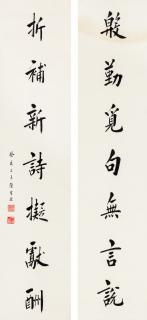 殷勤覓句無言說
折補新詩擬獻酬